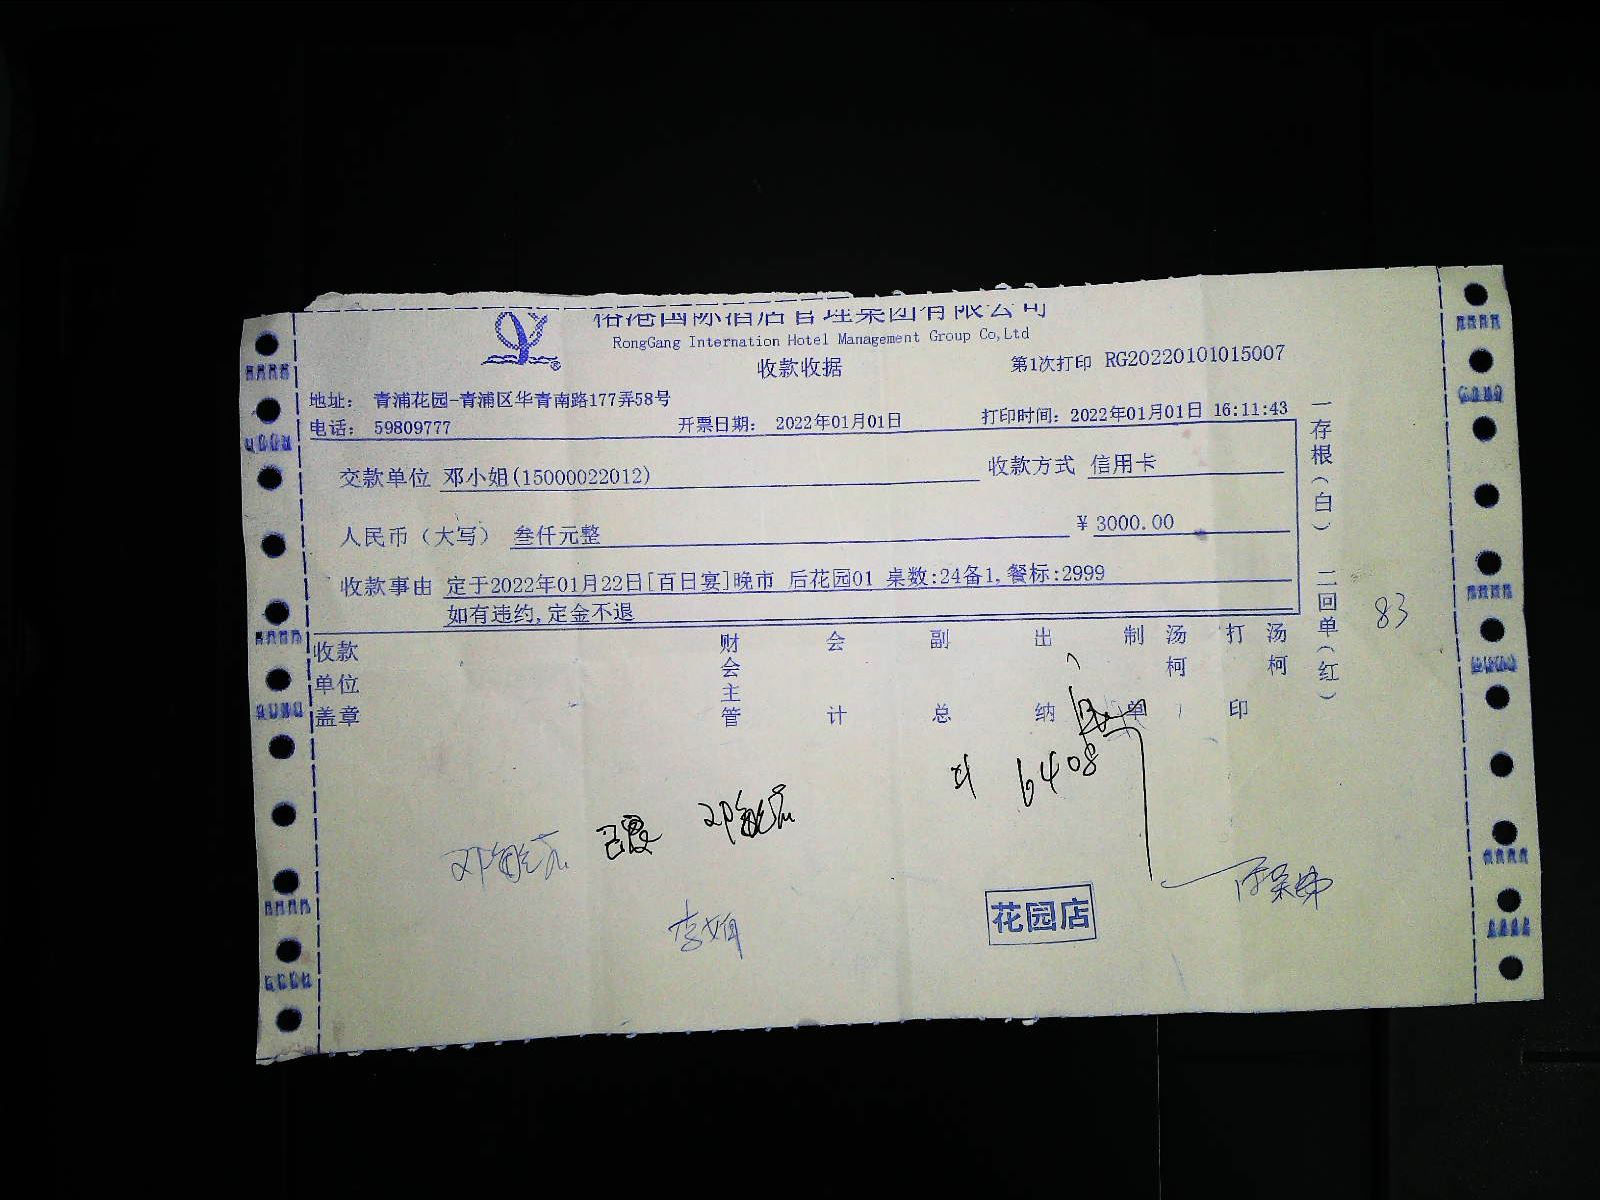 国际酒店管理集团有限公司
RongGang Internation Hotel Management Group Co,Ltd
收款收据
第1次打印 RG20220101015007
地址： 青浦花园-青浦区华青南路177弄58号
电话： 59809777
开票日期： 2022年01月01日
打印时间：2022年01月01日 16:11:43
交款单位 邓小姐(15000022012)
收款方式 信用卡
人民币（大写） 叁仟元整
￥3000.00
收款事由 定于2022年01月22日[百日宴]晚市 后花园01 桌数:24备1,餐标:2999
如有违约,定金不退
收款单位盖章
财会主管
会计
副总
出纳
制单
汤柯
打印
汤柯
一存根（白） 二回单（红）
83
6408
花园店